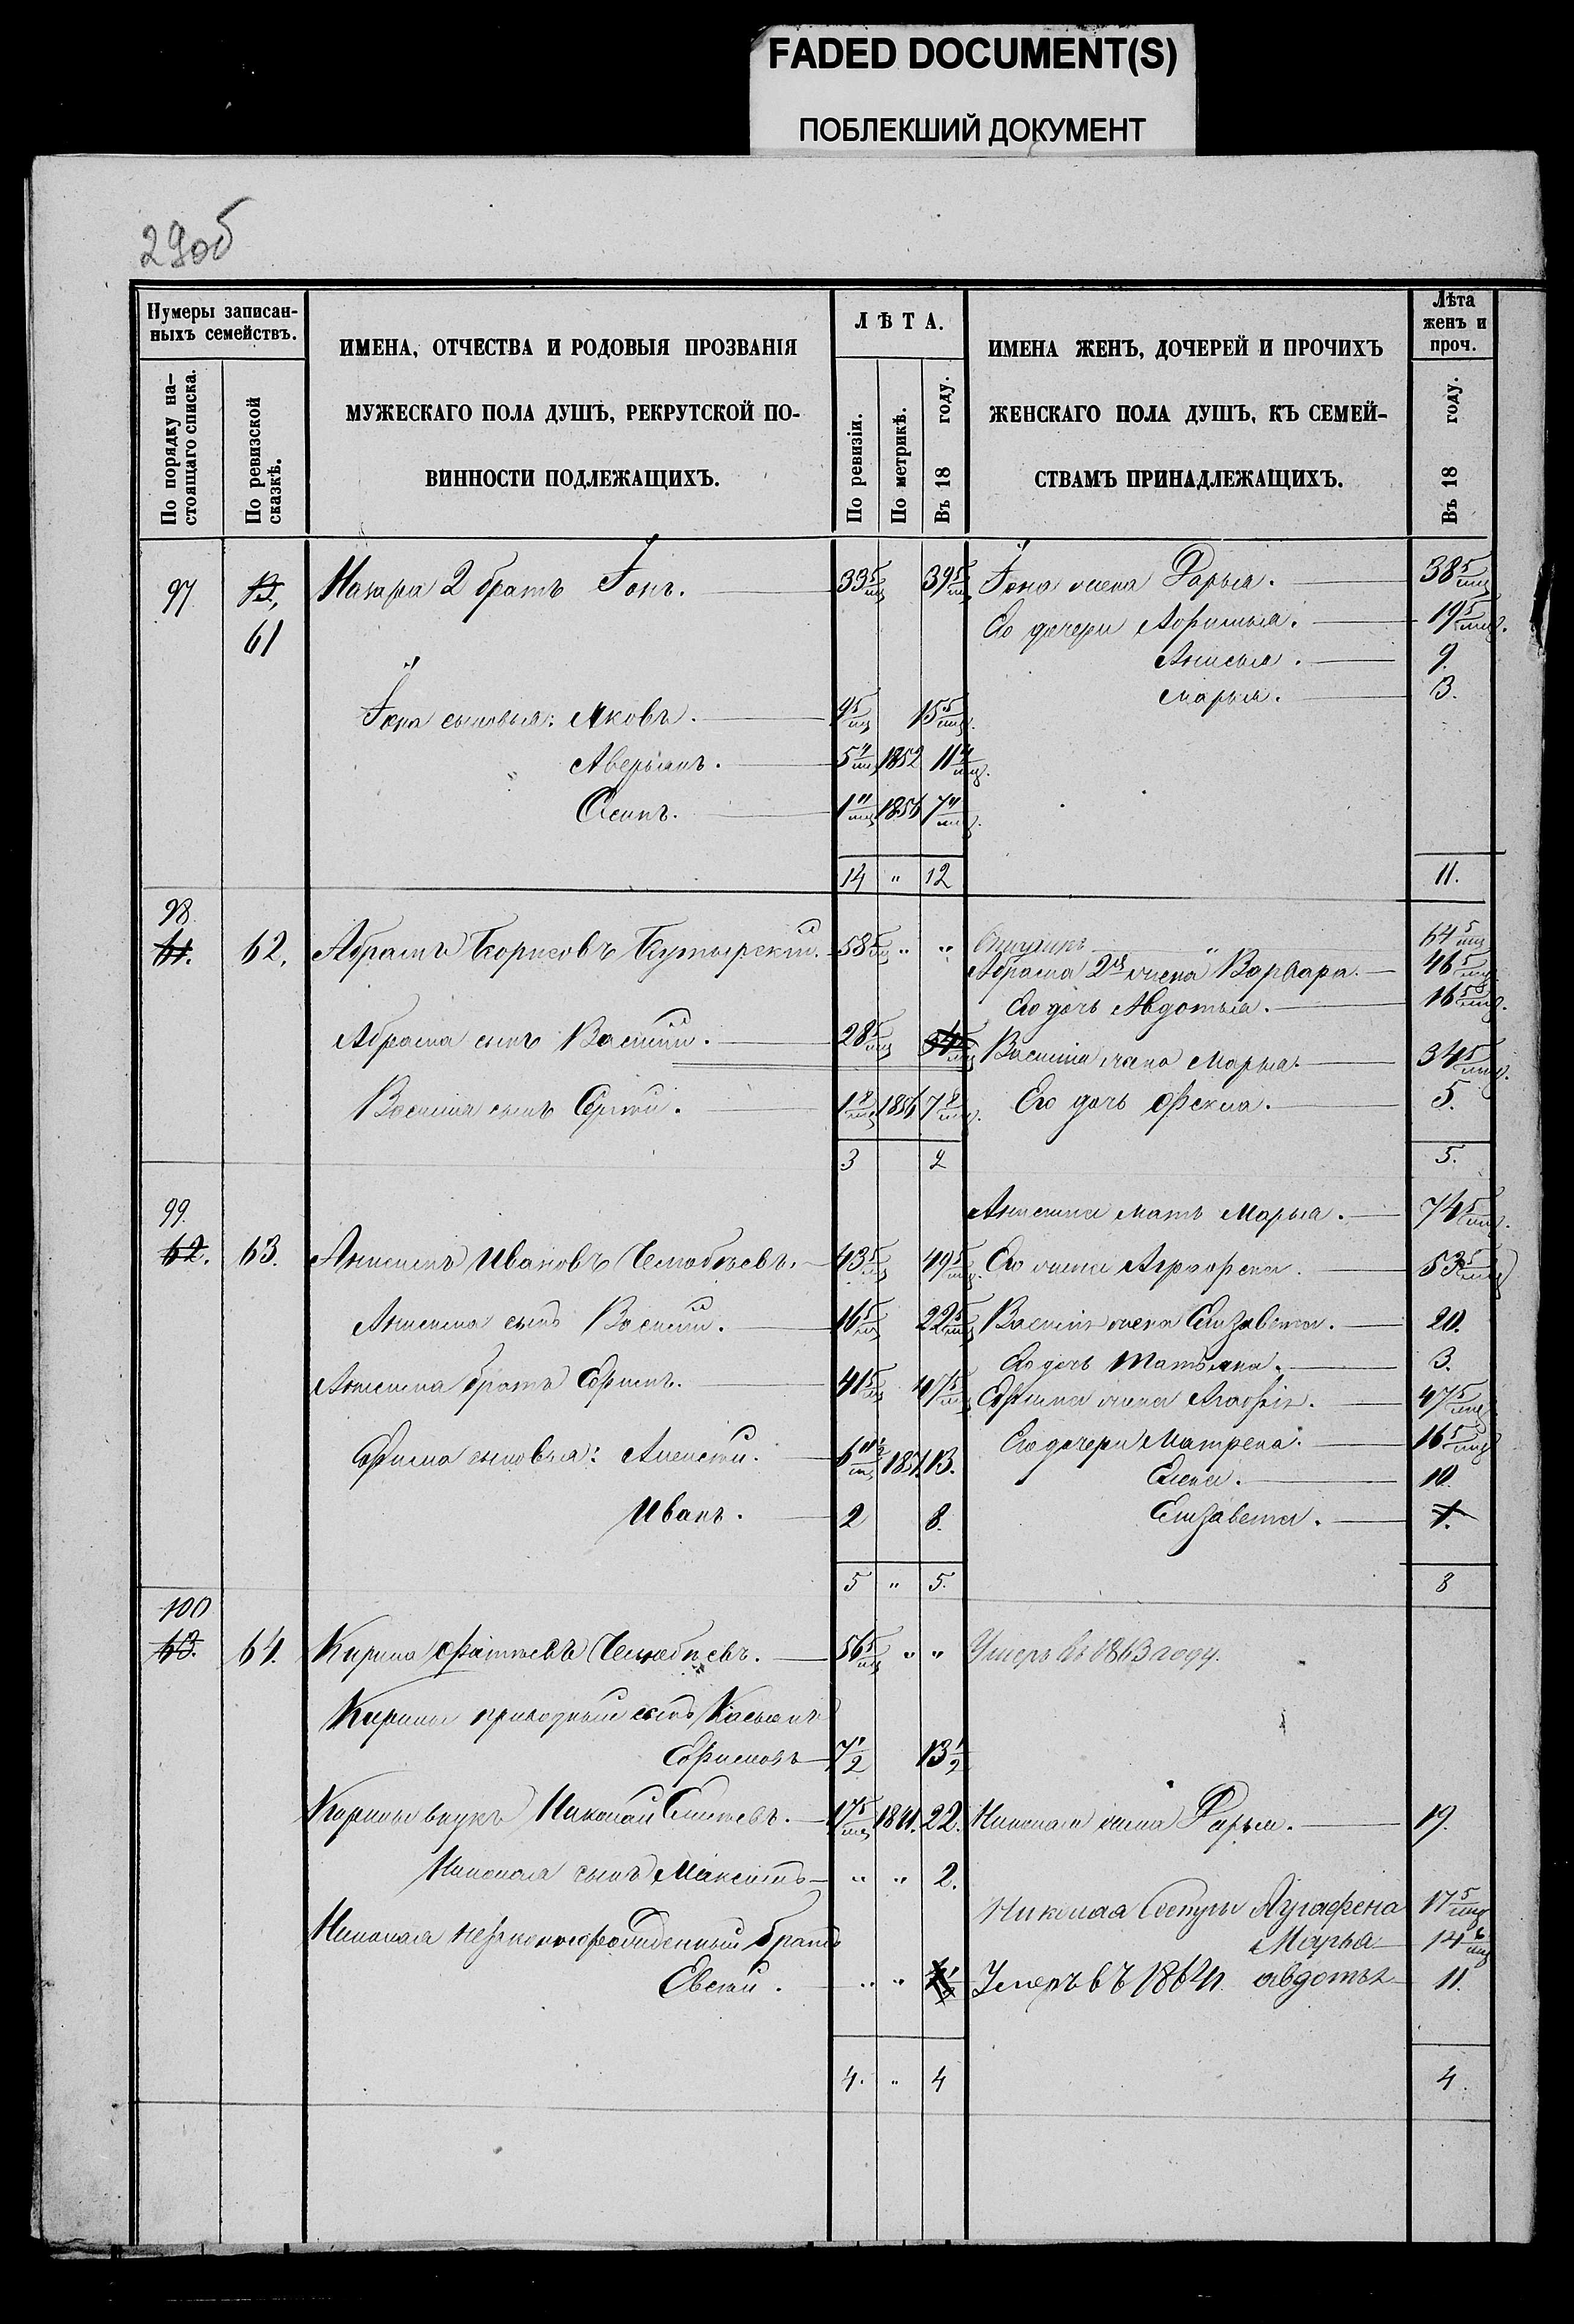 FADED DOCUMENT(S)
ПОБЛЕКШИЙ ДОКУМЕНТ
29об
Нумеры записан-
ныхъ семействъ.
По порядку на-
стоящаго списка.
По ревизской
сказкѣ.
ИМЕНА, ОТЧЕСТВА И РОДОВЫЯ ПРОЗВАНІЯ
МУЖЕСКАГО ПОЛА ДУШЪ, РЕКРУТСКОЙ ПО-
ВИННОСТИ ПОДЛЕЖАЩИХЪ.
ЛѢТА.
По ревизіи.
По метрикѣ.
Въ 18 году.
ИМЕНА ЖЕНЪ, ДОЧЕРЕЙ И ПРОЧИХЪ
ЖЕНСКАГО ПОЛА ДУШЪ, КЪ СЕМЕЙ-
СТВАМЪ ПРИНАДЛЕЖАЩИХЪ.
Лѣта
женъ и
проч.
Въ 18 году.
97 Назара 2 братъ Іонъ. 33 5/мц 39 5/мц Іона жена Дарья. 38 5/мц
61 Его дочери 19 5/мц.
Анисья. 9.
Марья. 3.
Іона сыновья: Яковъ. 9 5/мц 15 5/мц.
Аверьянъ. 5 4/мц 1852 11 4/мц.
Осипъ. 1 11/мц 1856 7 11/мц.
14 " 12 11.
98
61. 62. Абрамъ Борисовъ Бутырскій. 58 5/мц " " 64 5/мц
Абрама 2я жена Варвара. 46 5/мц
Его дочь Авдотья. 16 5/мц.
Абрама сынъ Василій. 28 5/мц Василія жена Марья. 34 5/мц.
Василія сынъ Сергѣй. 1 8/мц 1856 7 8/мц. Его дочь Фекла. 5.
3 2 5.
99. Анисима мать Марья. 74 5/мц.
62. 63. Анисимъ Ивановъ Челюбѣевъ. 43 5/мц 49 5/мц. Его жена Аграфена. 53 5/мц
Анисима сынъ Василій. 16 5/мц 22 5/мц Василія жена Елизавета. 20.
Его дочь Татьяна. 3.
Анисима братъ Ефимъ. 41 5/мц 47 5/мц Ефима жена Агафья. 47 5/мц
Ефима сыновья: Алексѣй. 6 11/мц 1851. 13. Его дочери Матрена. 16 5/мц
Елена. 10.
Иванъ. 2 8. Елизавета. 1.
5 " 5. 8
100
63. 64. Кирила Фатѣевъ Челюбѣевъ. 56 5/мц " " Умеръ въ 1863 году.
Кирилы приводный сынъ Касьянъ
Ефимовъ 7 1/2 13 1/2
Кирилы внукъ Николай 17 5/мц 1841. 22. Николая жена Дарья. 19.
Николая сынъ Максимъ " " 2.
Николая Сестры Аграфена 17 5/мц
Николая незаконнорожденный братъ Марья 14 6/мц
Евсѣй. " " Умеръ въ 1864 г. Авдотья 11.
4. " 4 4.